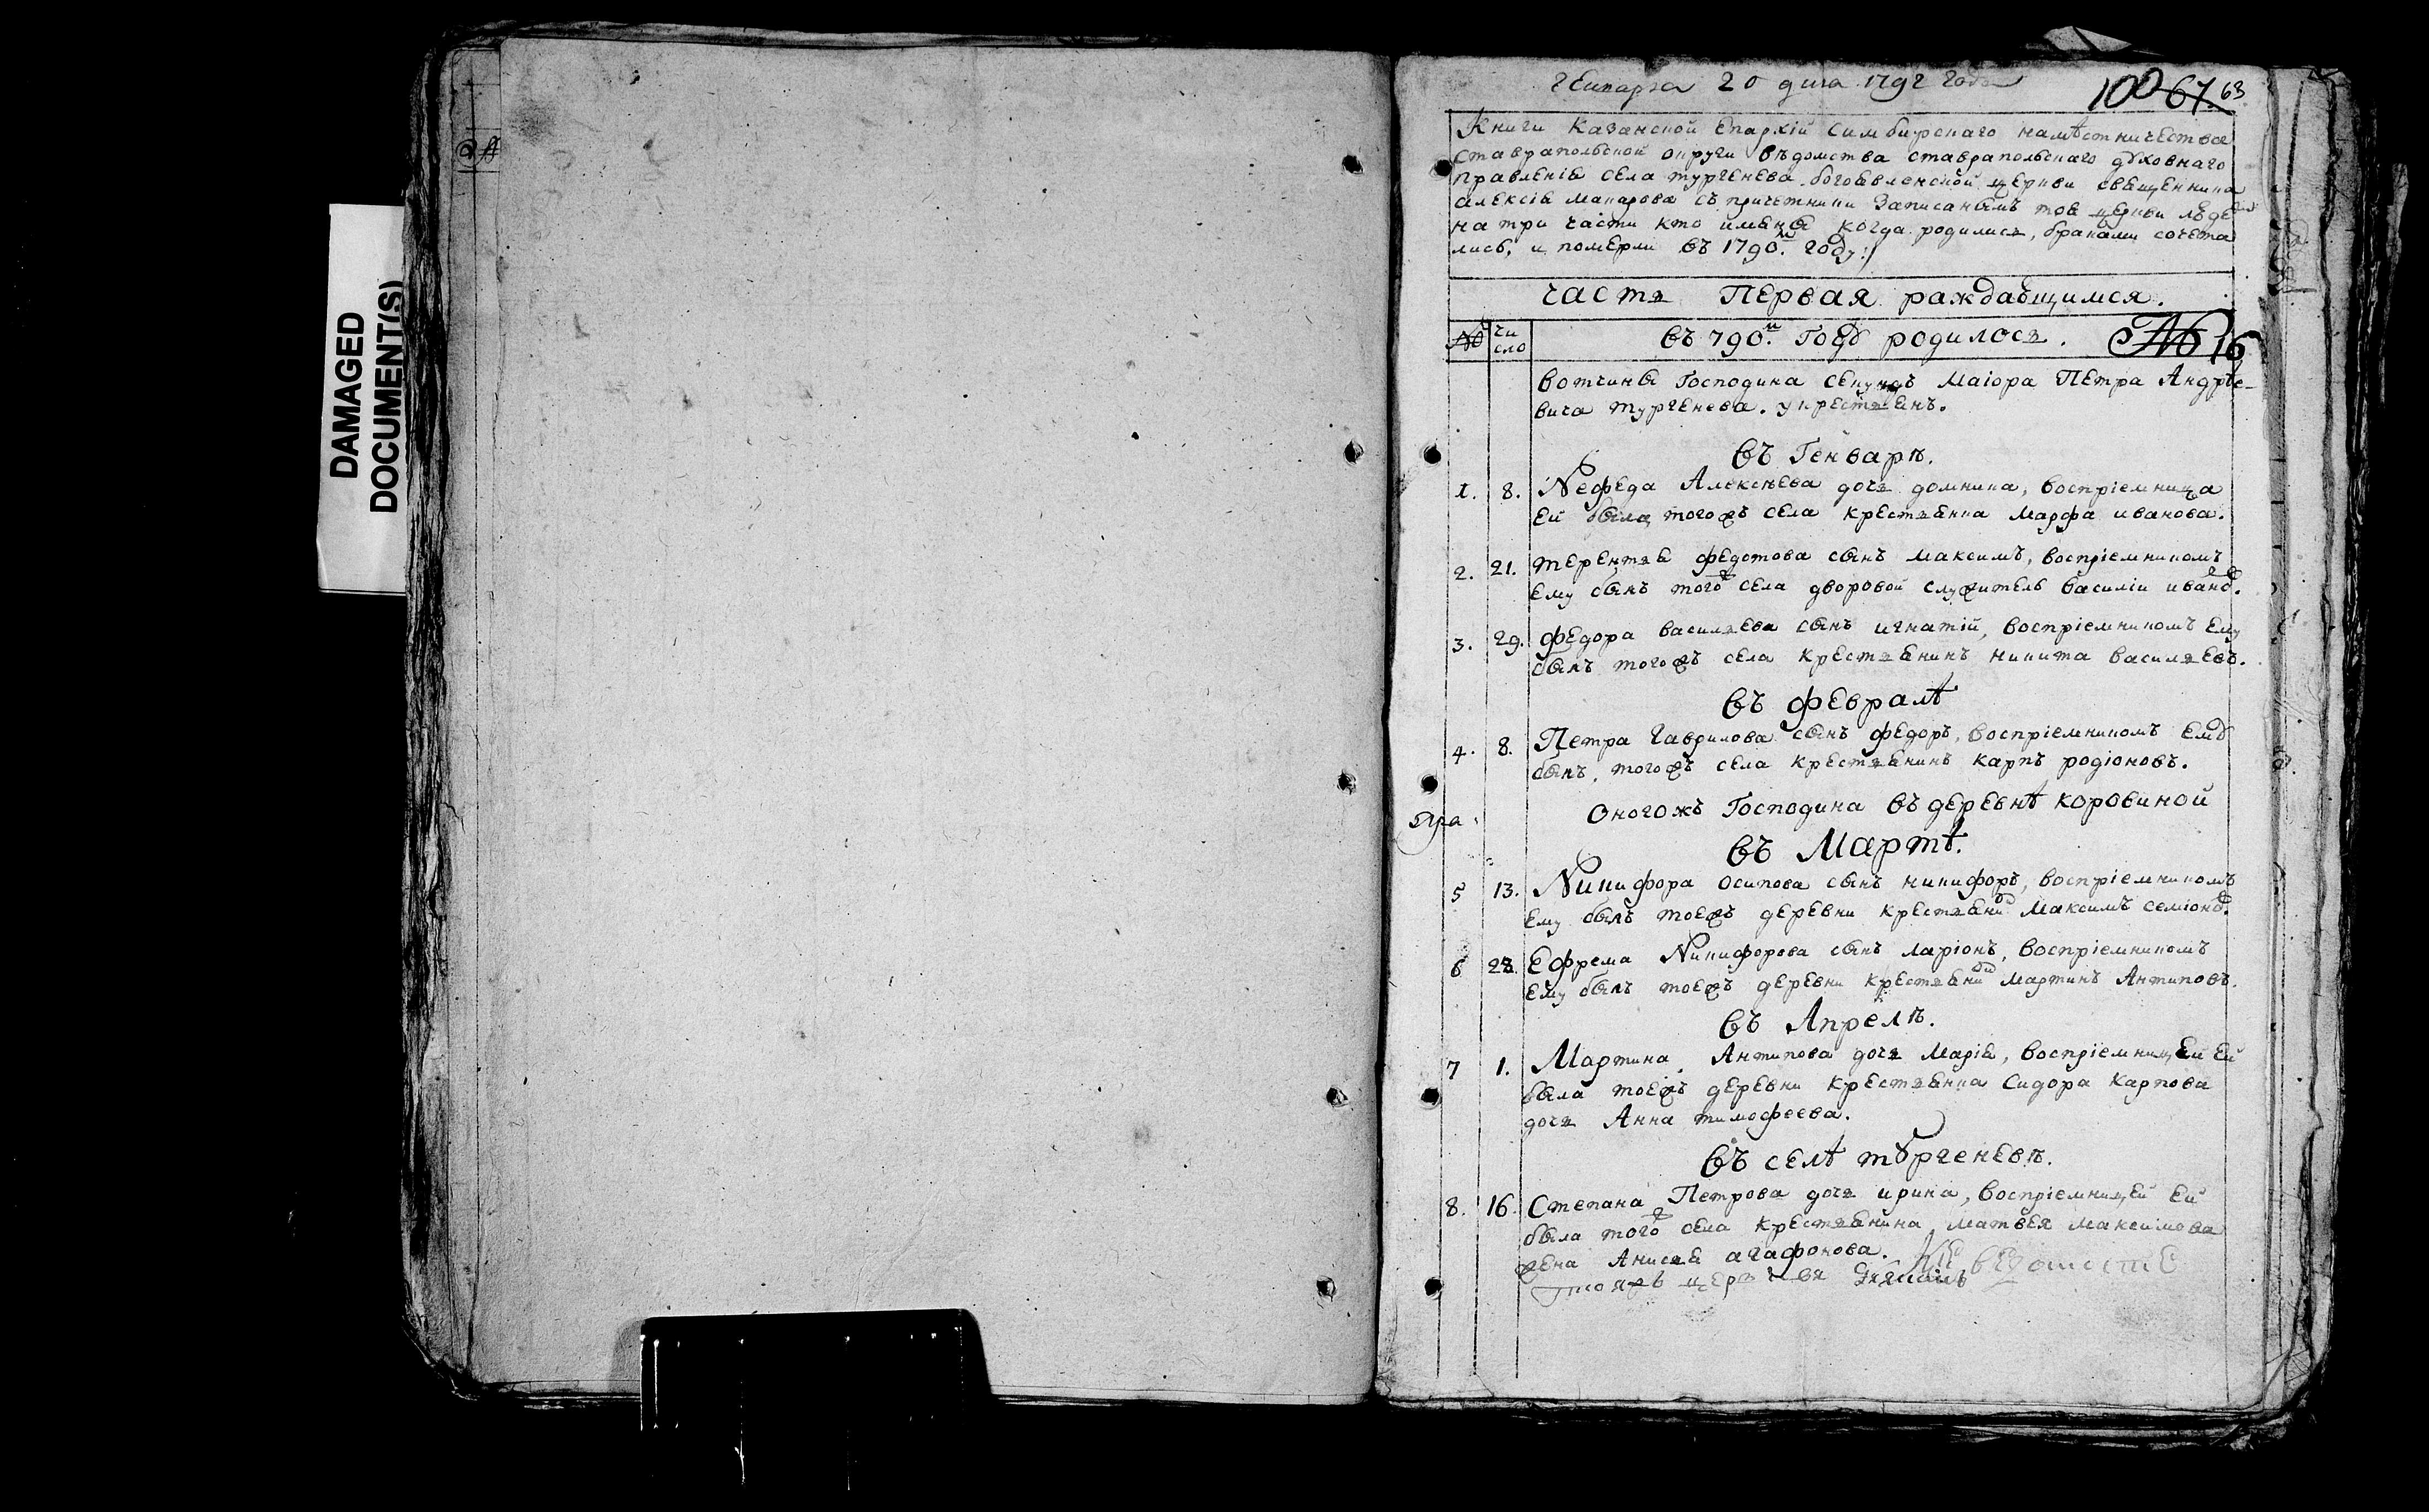 DAMAGED
DOCUMENT(S)
Генваря 20 дня 1792 года
100 67 63
Книги Казанской Епархіи Симбирскаго намѣстничества
Ставрапольской округи вѣдомства ставрапольскаго дховнаго
правленія села тургенева богоявленской церкви священника
Алексія Макарова съ причетники записанымъ тоя церкви людемъ
на три части кто имяны когда родились, браками сочета
лись, и померли въ 1790м. году:/
Часть Первая раждающимся.
№ Чи
сло
въ 790м. Году родилось. № 16
вотчины Господина секундъ Маіора Петра Андрѣе-
вича тургенева. у крестьянъ.
въ Генварѣ.
1. 8. Нефеда Алексѣева дочь домника, воспріемница
ей была тогожъ села крестьянка Марфа иванова.
2. 21. терентья федотова сынъ максимъ, воспріемникомъ
ему былъ тогож села дворовой служитель василіи иванов.
3. 29. федора васильева сынъ игнатій, воспріемникомъ ему
былъ тогожъ села крестьянинъ никита васильевъ.
въ февралѣ
4. 8. Петра гаврилова сынъ федоръ, воспріемникомъ ему
былъ, тогожъ села крестьянинъ карпъ родіоновъ.
Оногожъ Господина въ деревнѣ коровиной
въ Мартѣ.
5 13. Никифора осипова сынъ никифоръ, воспріемникомъ
ему былъ тоежъ деревни крестьянинъ Максимъ семіонов.
6 28. Ефрема Никифорова сынъ ларіонъ, воспріемникомъ
ему былъ тоежъ деревни крестьянинъ Мартинъ Антиповъ.
въ Апрелѣ.
7 1. Мартина Антипова дочь Марія, воспріемницей ей
была тоежъ деревни крестьянина Сидора карпова
дочь Анна тимофеева.
въ селѣ тургеневѣ.
8. 16. Степана Петрова дочь ирина, воспріемницей ей
была тогож села крестьянина матвея максимова
жена Анисья агафонова.